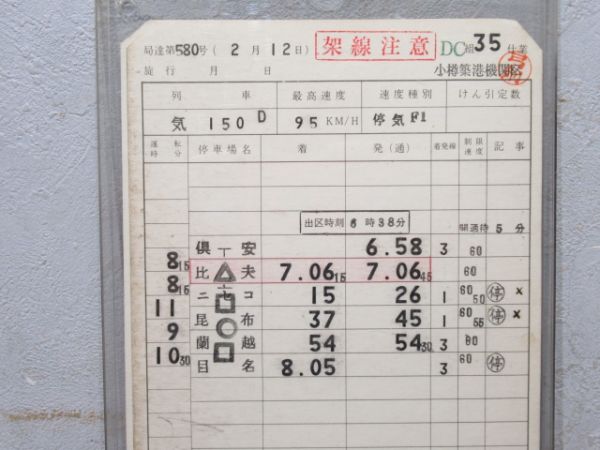 局達第580号 ( 2 月 12 日) 架線注意 DC組35仕業
施行 月 日 小樽築港機関区
列 車 最高速度 速度種別 けん引定数
気 150D 95 KM/H 停気F1
運転時分 停車場名 着 発(通) 着発線 制限速度 記事
出区時刻 6 時38分 開通待 5 分
倶安 6.58 3 60
8 15 比夫 7.06 15 7.06 45 60
8 15 ニコ 15 26 1 60 50 停 ×
11 昆布 37 45 1 60 55 停 ×
9 蘭越 54 54 30 3 80
10 30 目名 8.05 3 60 停